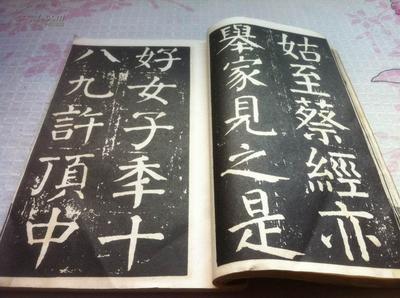 姑至蔡經亦
舉家見之是
好女子年十
八九許頂中